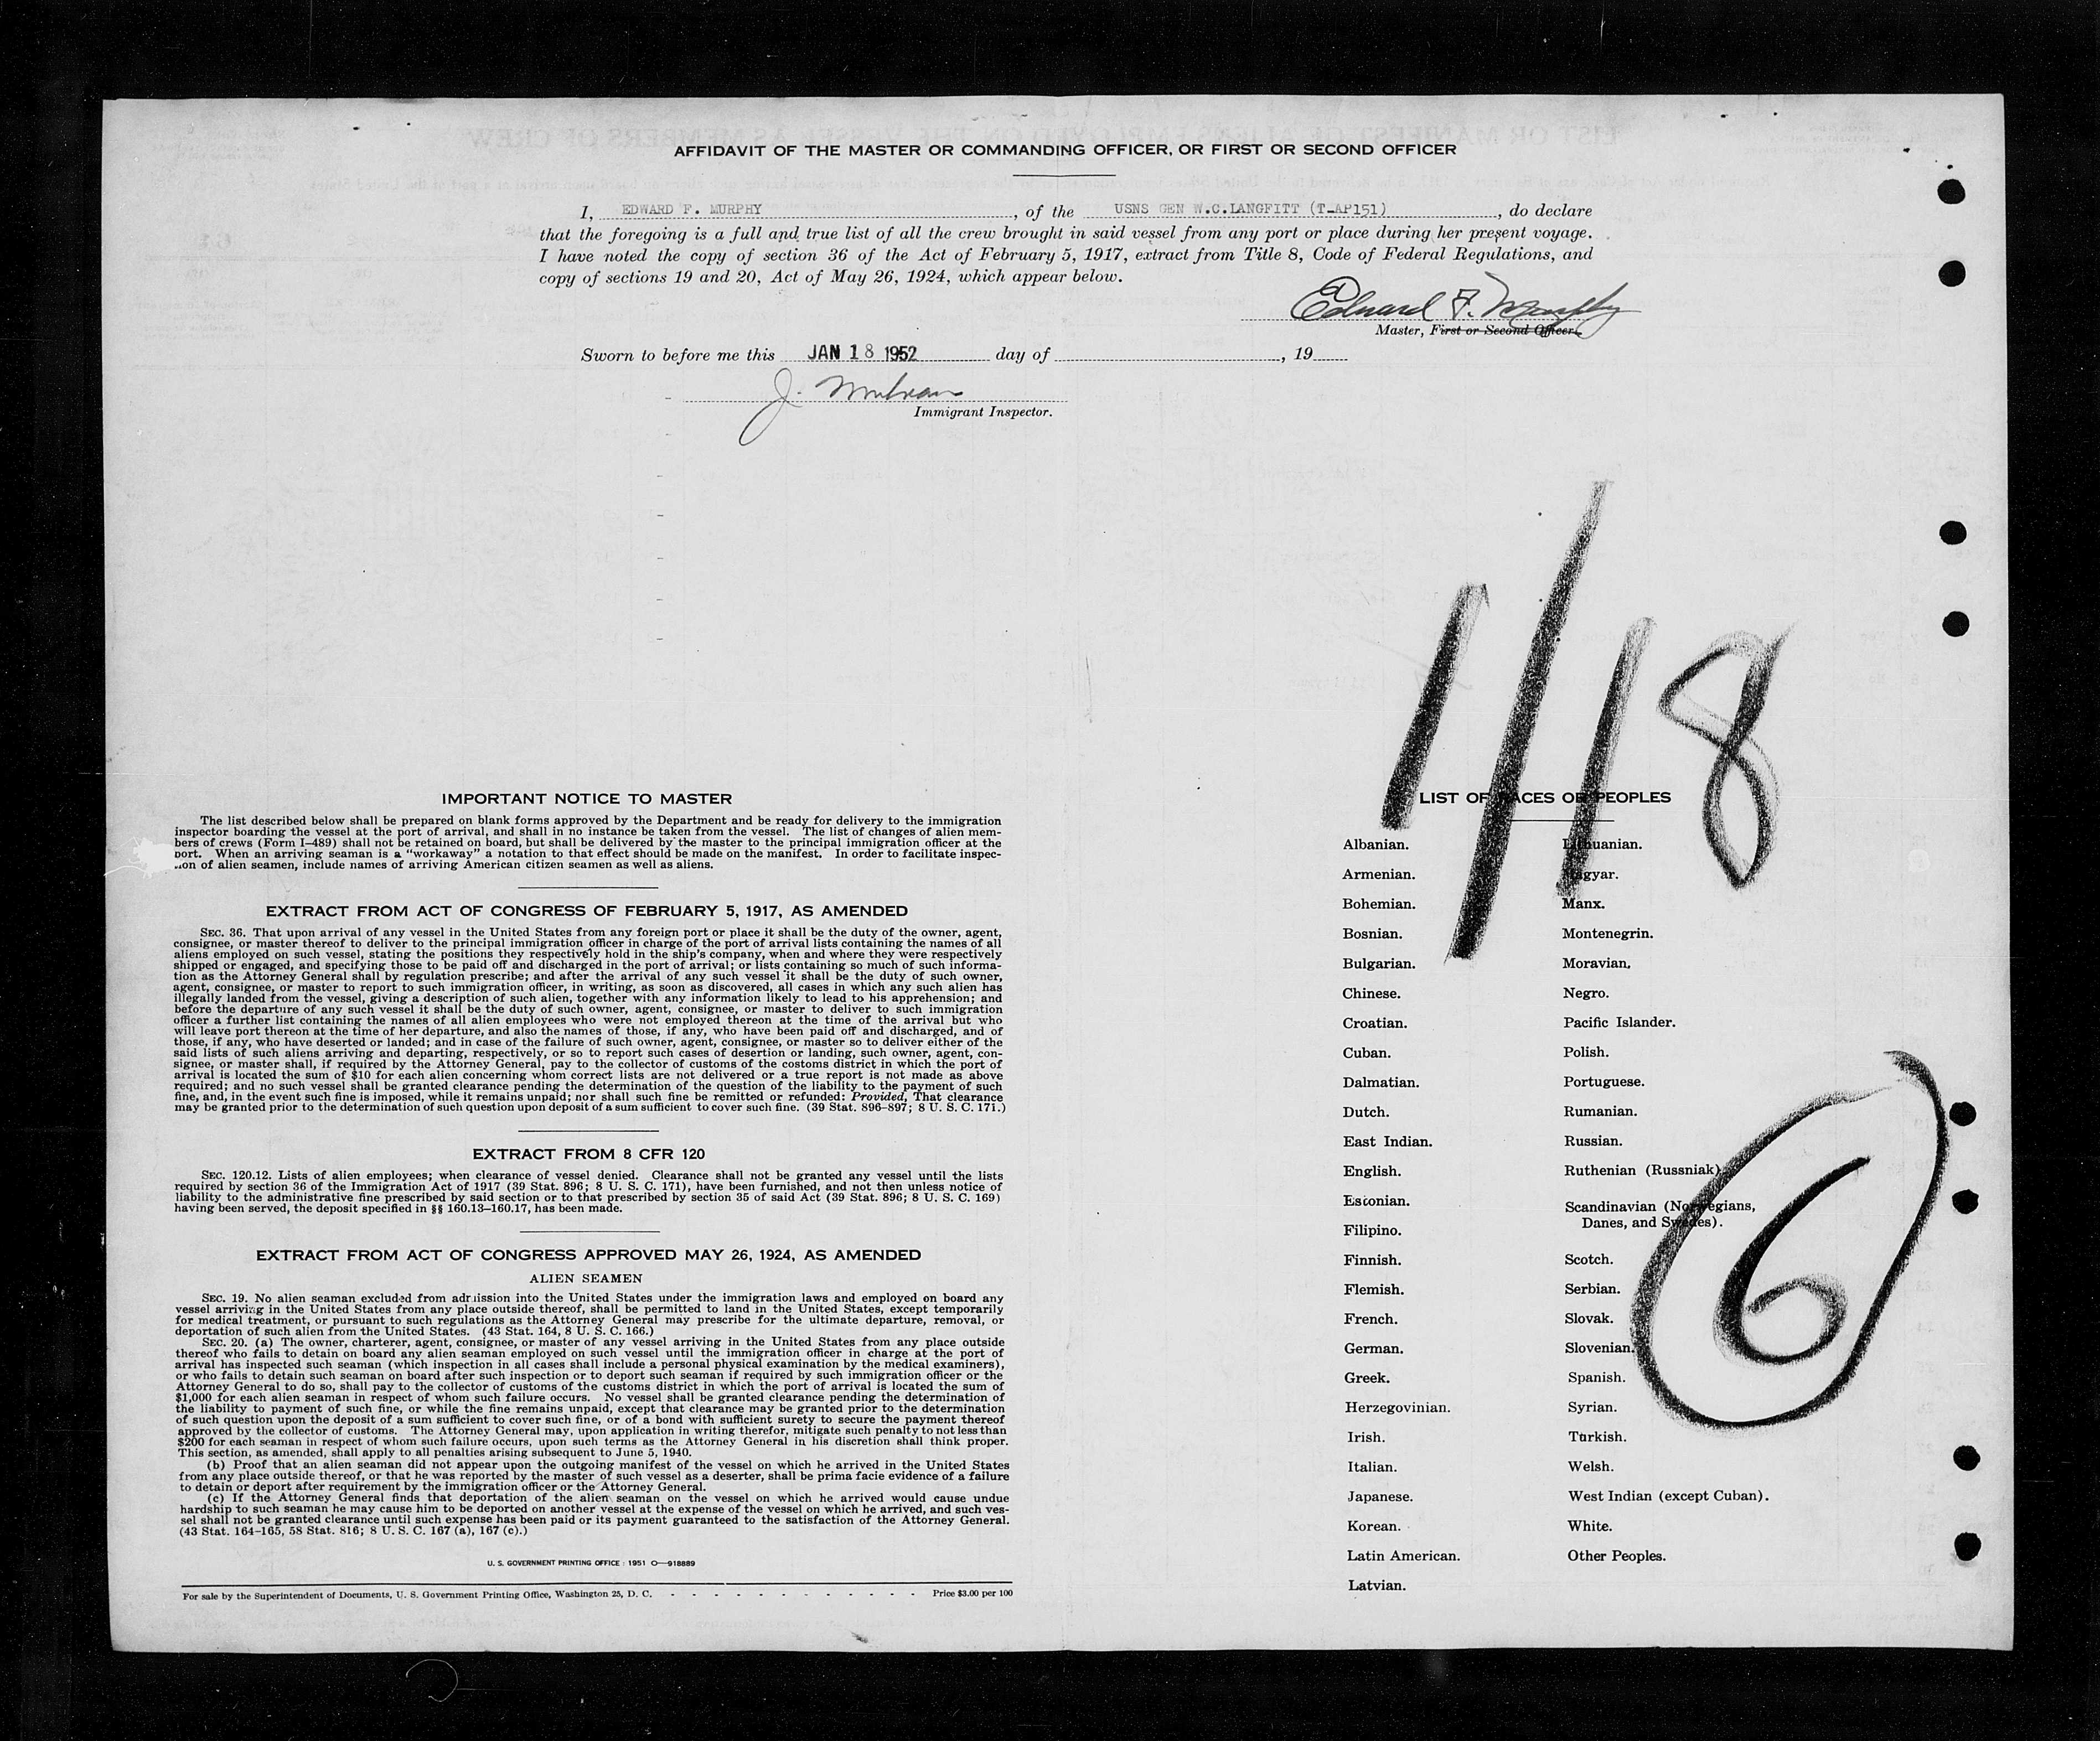 AFFIDAVIT OF THE MASTER OR COMMANDING OFFICER, OR FIRST OR SECOND OFFICER
I, EDWARD F. MURPHY, of the USNS GEN W.C.LANGFITT (T-AP151), do declare
that the foregoing is a full and true list of all the crew brought in said vessel from any port or place during her present voyage.
I have noted the copy of section 36 of the Act of February 5, 1917, extract from Title 8, Code of Federal Regulations, and
copy of sections 19 and 20, Act of May 26, 1924, which appear below.
Edward F. Murphy
Master, First or Second Officer.
Sworn to before me this JAN 18 1952 day of , 19
J.
Immigrant Inspector.
1/18
IMPORTANT NOTICE TO MASTER
The list described below shall be prepared on blank forms approved by the Department and be ready for delivery to the immigration
inspector boarding the vessel at the port of arrival, and shall in no instance be taken from the vessel. The list of changes of alien mem-
bers of crews (Form I-489) shall not be retained on board, but shall be delivered by the master to the principal immigration officer at the
port. When an arriving seaman is a "workaway" a notation to that effect should be made on the manifest. In order to facilitate inspec-
ion of alien seamen, include names of arriving American citizen seamen as well as aliens.
EXTRACT FROM ACT OF CONGRESS OF FEBRUARY 5, 1917, AS AMENDED
SEC. 36. That upon arrival of any vessel in the United States from any foreign port or place it shall be the duty of the owner, agent,
consignee, or master thereof to deliver to the principal immigration officer in charge of the port of arrival lists containing the names of all
aliens employed on such vessel, stating the positions they respectively hold in the ship's company, when and where they were respectively
shipped or engaged, and specifying those to be paid off and discharged in the port of arrival; or lists containing so much of such informa-
tion as the Attorney General shall by regulation prescribe; and after the arrival of any such vessel it shall be the duty of such owner,
agent, consignee, or master to report to such immigration officer, in writing, as soon as discovered, all cases in which any such alien has
illegally landed from the vessel, giving a description of such alien, together with any information likely to lead to his apprehension; and
before the departure of any such vessel it shall be the duty of such owner, agent, consignee, or master to deliver to such immigration
officer a further list containing the names of all alien employees who were not employed thereon at the time of the arrival but who
will leave port thereon at the time of her departure, and also the names of those, if any, who have been paid off and discharged, and of
those, if any, who have deserted or landed; and in case of the failure of such owner, agent, consignee, or master so to deliver either of the
said lists of such aliens arriving and departing, respectively, or so to report such cases of desertion or landing, such owner, agent, con-
signee, or master shall, if required by the Attorney General, pay to the collector of customs of the costoms district in which the port of
arrival is located the sum of $10 for each alien concerning whom correct lists are not delivered or a true report is not made as above
required; and no such vessel shall be granted clearance pending the determination of the question of the liability to the payment of such
fine, and, in the event such fine is imposed, while it remains unpaid; nor shall such fine be remitted or refunded: Provided, That clearance
may be granted prior to the determination of such question upon deposit of a sum sufficient to cover such fine. (39 Stat. 896-897; 8 U. S. C. 171.)
EXTRACT FROM 8 CFR 120
SEC. 120.12. Lists of alien employees; when clearance of vessel denied. Clearance shall not be granted any vessel until the lists
required by section 36 of the Immigration Act of 1917 (39 Stat. 896; 8 U. S. C. 171), have been furnished, and not then unless notice of
liability to the administrative fine prescribed by said section or to that prescribed by section 35 of said Act (39 Stat. 896; 8 U. S. C. 169)
having been served, the deposit specified in §§ 160.13-160.17, has been made.
EXTRACT FROM ACT OF CONGRESS APPROVED MAY 26, 1924, AS AMENDED
ALIEN SEAMEN
SEC. 19. No alien seaman excluded from admission into the United States under the immigration laws and employed on board any
vessel arriving in the United States from any place outside thereof, shall be permitted to land in the United States, except temporarily
for medical treatment, or pursuant to such regulations as the Attorney General may prescribe for the ultimate departure, removal, or
deportation of such alien from the United States. (43 Stat. 164, 8 U. S. C. 166.)
SEC. 20. (a) The owner, charterer, agent, consignee, or master of any vessel arriving in the United States from any place outside
thereof who fails to detain on board any alien seaman employed on such vessel until the immigration officer in charge at the port of
arrival has inspected such seaman (which inspection in all cases shall include a personal physical examination by the medical examiners),
or who fails to detain such seaman on board after such inspection or to deport such seaman if required by such immigration officer or the
Attorney General to do so, shall pay to the collector of customs of the customs district in which the port of arrival is located the sum of
$1,000 for each alien seaman in respect of whom such failure occurs. No vessel shall be granted clearance pending the determination of
the liability to payment of such fine, or while the fine remains unpaid, except that clearance may be granted prior to the determination
of such question upon the deposit of a sum sufficient to cover such fine, or of a bond with sufficient surety to secure the payment thereof
approved by the collector of customs. The Attorney General may, upon application in writing therefor, mitigate such penalty to not less than
$200 for each seaman in respect of whom such failure occurs, upon such terms as the Attorney General in his discretion shall think proper.
This section, as amended, shall apply to all penalties arising subsequent to June 5, 1940.
(b) Proof that an alien seaman did not appear upon the outgoing manifest of the vessel on which he arrived in the United States
from any place outside thereof, or that he was reported by the master of such vessel as a deserter, shall be prima facie evidence of a failure
to detain or deport after requirement by the immigration officer or the Attorney General.
(c) If the Attorney General finds that deportation of the alien seaman on the vessel on which he arrived would cause undue
hardship to such seaman he may cause him to be deported on another vessel at the expense of the vessel on which he arrived, and such ves-
sel shall not be granted clearance until such expense has been paid or its payment guaranteed to the satisfaction of the Attorney General.
(43 Stat. 164-165, 58 Stat. 816; 8 U. S. C. 167 (a), 167 (c).)
U. S. GOVERNMENT PRINTING OFFICE : 1951 O—918889
For sale by the Superintendent of Documents, U. S. Government Printing Office, Washington 25, D. C. - - - - - - - - - - - - Price $3.00 per 100
LIST OF RACES OR PEOPLES
Albanian.
Armenian.
Bohemian.
Bosnian.
Bulgarian.
Chinese.
Croatian.
Cuban.
Dalmatian.
Dutch.
East Indian.
English.
Estonian.
Filipino.
Finnish.
Flemish.
French.
German.
Greek.
Herzegovinian.
Irish.
Italian.
Japanese.
Korean.
Latin American.
Latvian.
Lithuanian.
Magyar.
Manx.
Montenegrin.
Moravian.
Negro.
Pacific Islander.
Polish.
Portuguese.
Rumanian.
Russian.
Ruthenian (Russniak).
Scandinavian (Norwegians,
Danes, and Swedes).
Scotch.
Serbian.
Slovak.
Slovenian.
Spanish.
Syrian.
Turkish.
Welsh.
West Indian (except Cuban).
White.
Other Peoples.
6